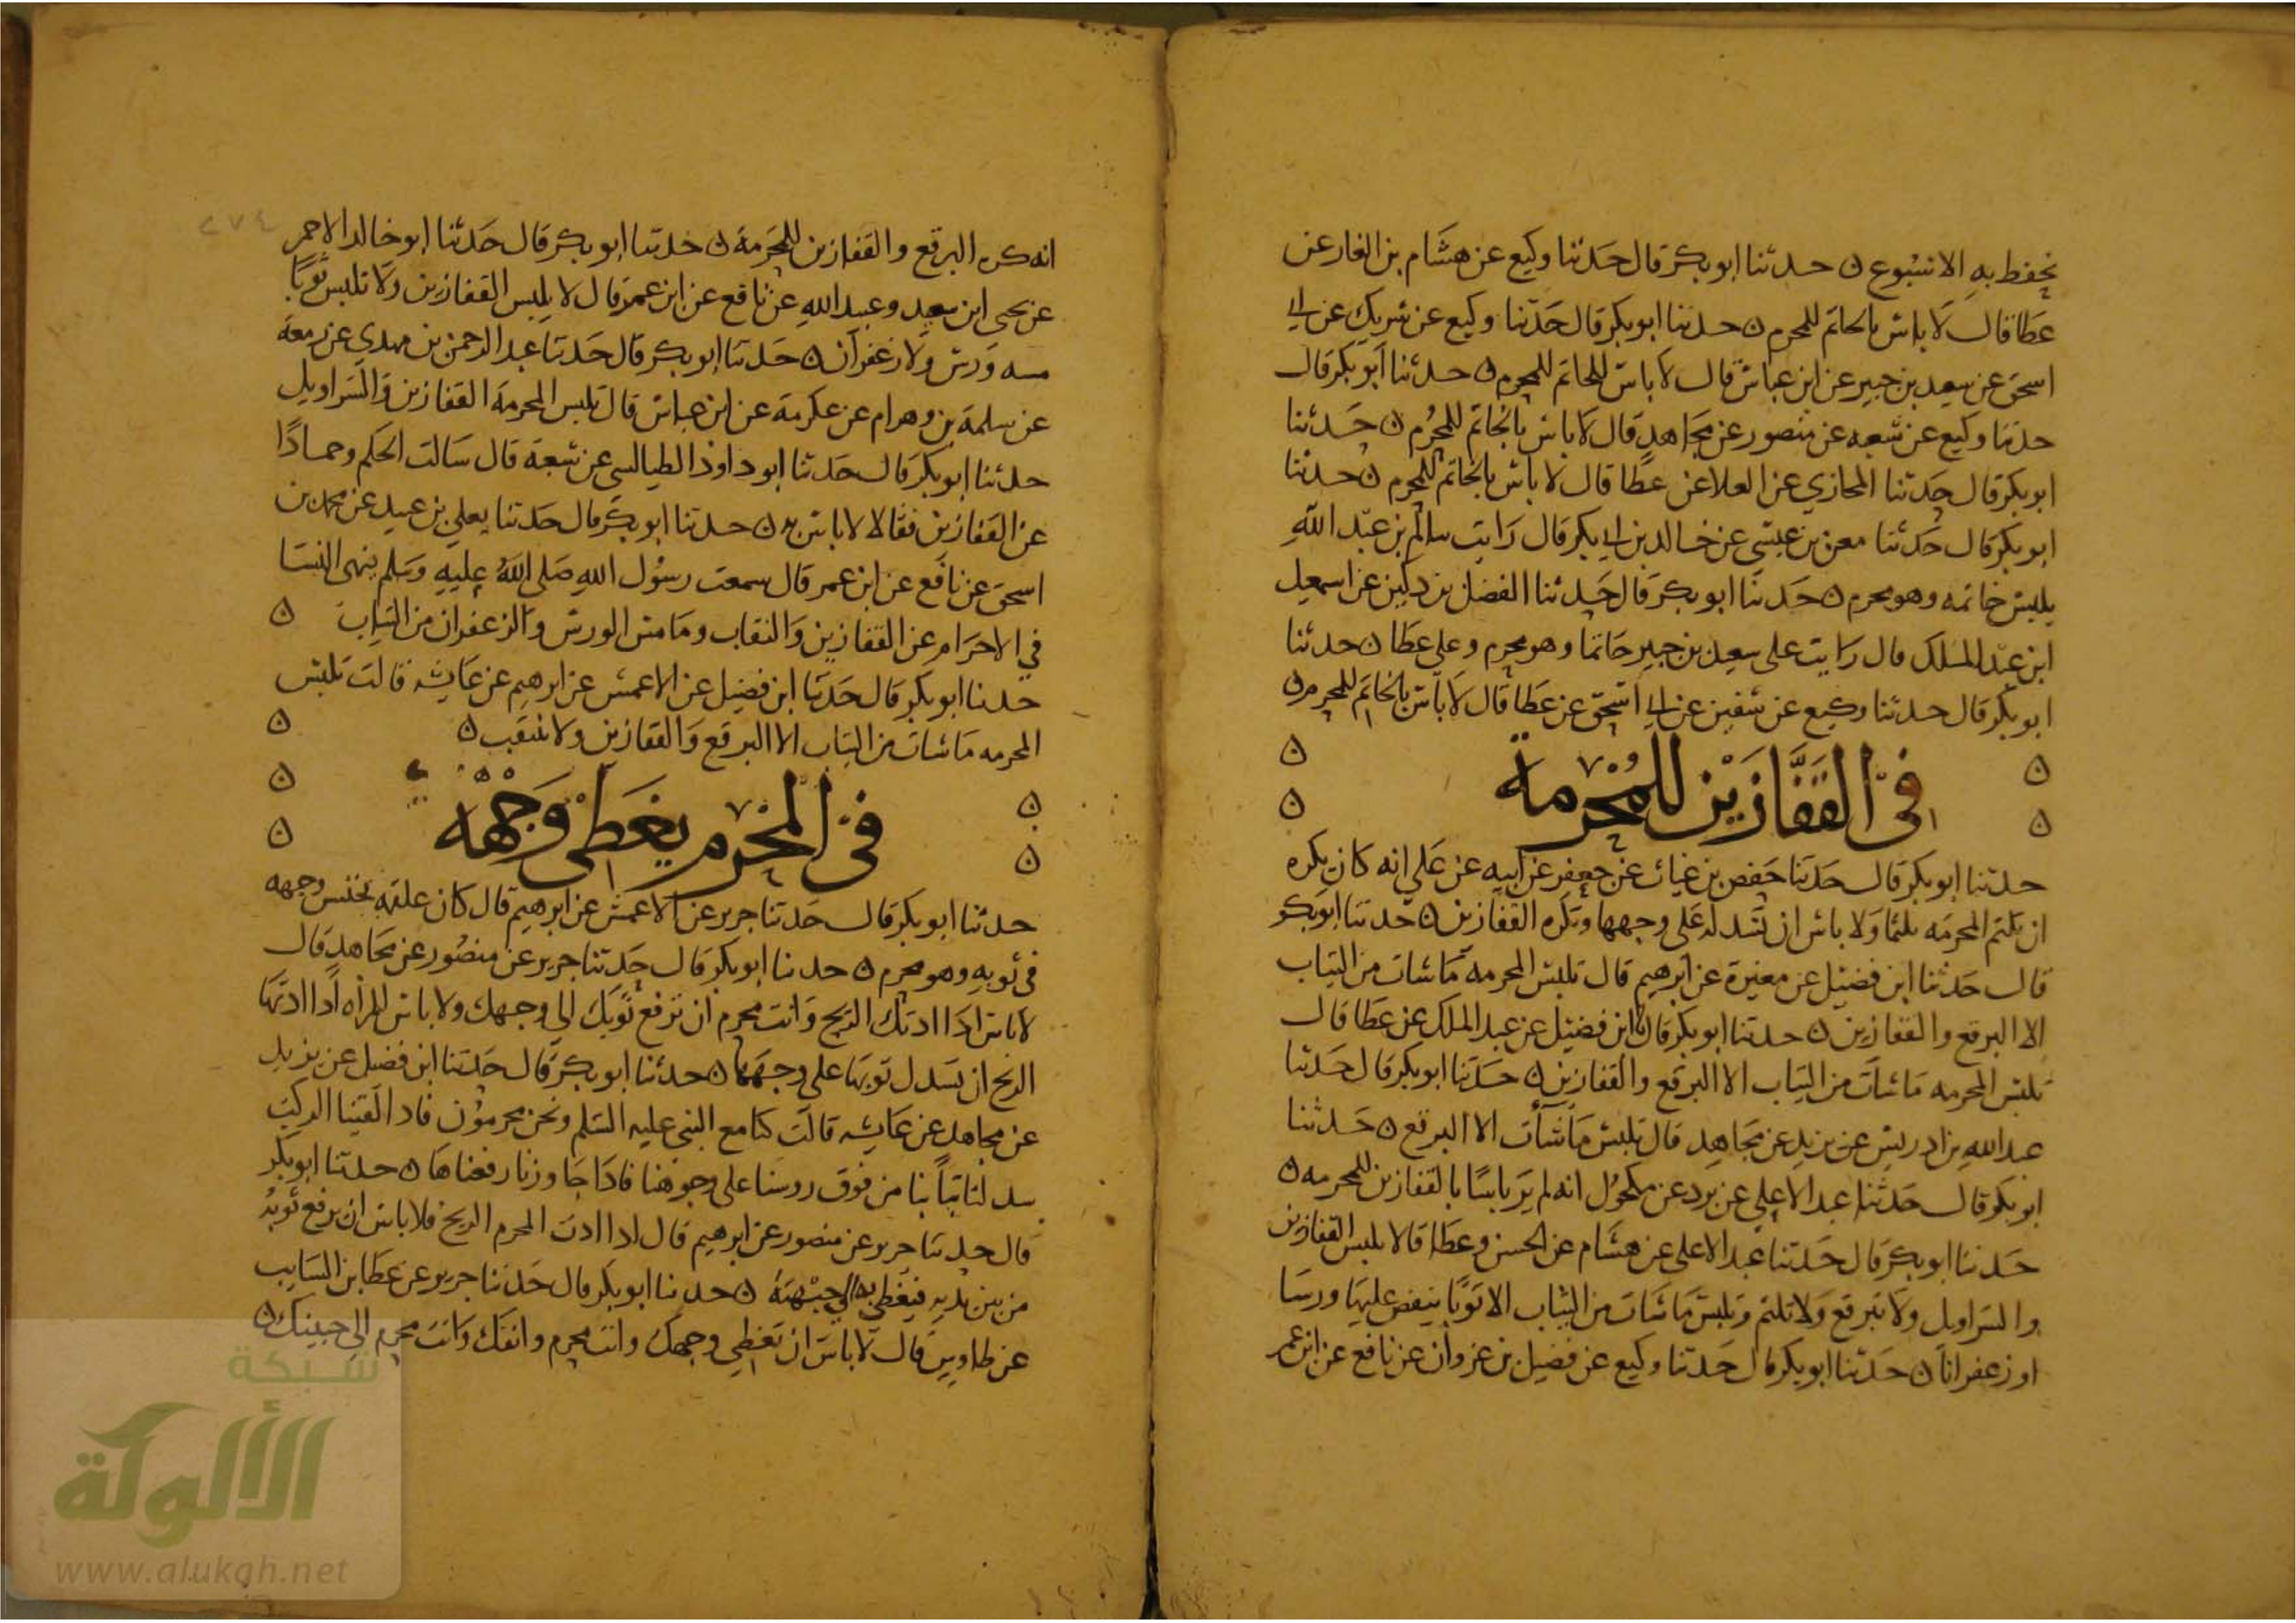 نحفظ به الاسبوع ن حدثنا ابو بكر قال حدثنا وكيع عن هشام بن الغاز عن
عطا قال لا باس بالخاتم للمحرم ن حدثنا ابو بكر قال حدثنا وكيع عن شريك عن ابي
اسحق عن سعيد بن جبير عن ابن عباس قال لا باس للخاتم للمحرم ن حدثنا ابو بكر قال
حدثنا وكيع عن شعبه عن منصور عن مجاهد قال لا باس بالخاتم للمحرم ن حدثنا
ابو بكر قال حدثنا المحاربي عن العلا عن عطا قال لا باس بالخاتم للمحرم ن حدثنا
ابو بكر قال حدثنا معن بن عيسى عن خالد بن ابي بكر قال رايت سالم بن عبد الله
يلبس خاتمه وهو محرم ن حدثنا ابو بكر قال حدثنا الفضل بن دكين عن اسمعيل
ابن عبد الملك قال رايت على سعيد بن جبير خاتما وهو محرم وعلى عطا ن حدثنا
ابو بكر قال حدثنا وكيع عن سفين عن ابي اسحق عن عطا قال لا باس بالخاتم للمحرم ن
في القفازين للمحرمة
حدثنا ابو بكر قال حدثنا حفص بن غياث عن جعفر عن ابيه عن علي انه كان يكره
ان تلثم المحرمه تلثما ولا باس ان تسدله على وجهها ويكره القفازين ن حدثنا ابو بكر
قال حدثنا ابن فضيل عن مغيرة عن ابرهيم قال تلبس المحرمة ما شات من الثياب
الا البرقع والقفازين ن حدثنا ابو بكر قال نا ابن فضيل عن عبد الملك عن عطا قال
تلبس المحرمه ما شات من الثياب الا البرقع والقفازين ن حدثنا ابو بكر قال حدثنا
عبد الله بن ادريس عن يزيد عن مجاهد قال تلبس ما شات الا البرقع ن حدثنا
ابو بكر قال حدثنا عبد الاعلى عن برد عن مكحول انه لم ير باسا بالقفازين للمحرمه ن
حدثنا ابو بكر قال حدثنا عبد الاعلى عن هشام عن الحسن وعطا قالا تلبس القفازين
والسراويل ولا تبرقع ولا تلثم وتلبس ما شات من الثياب الا ثوبا ينفض عليها ورسا
او زعفرانا ن حدثنا ابو بكر قال حدثنا وكيع عن فضيل بن غزوان عن نافع عن ابن عمر
٢٧٤
انه كره البرقع والقفازين للمحرمة ن حدثنا ابو بكر قال حدثنا ابو خالد الاحمر
عن يحيى ابن سعيد وعبيد الله عن نافع عن ابن عمر قال لا تلبس القفازين ولا تلبس ثوبا
مسه ورس ولا زعفران ن حدثنا ابو بكر قال حدثنا عبد الرحمن بن مهدي عن زمعة
عن سلمة بن وهرام عن عكرمة عن ابن عباس قال تلبس المحرمة القفازين والسراويل
حدثنا ابو بكر قال حدثنا ابو داوذ الطيالسي عن شعبة قال سالت الحكم وحمادا
عن القفازين فقالا لا باس به ن حدثنا ابو بكر قال حدثنا يعلي بن عبيد عن محمد بن
اسحق عن نافع عن ابن عمر قال سمعت رسول الله صلى الله عليه وسلم ينهى النسا
في الاحرام عن القفازين والنقاب وما مس الورس والزعفران من الثياب ن
حدثنا ابو بكر قال حدثنا ابن فضيل عن الاعمش عن ابرهيم عن عايشه قالت تلبس
المحرمه ما شات من الثياب الا البرقع والقفازين ولا تنتقب ن
في المحرم يغطي وجهه
حدثنا ابو بكر قال حدثنا جرير عن الاعمش عن ابرهيم قال كان علقمه وجهه
في ثوبه وهو محرم ن حدثنا ابو بكر قال حدثنا جرير عن منصور عن مجاهد قال
لا باس اذا اذتك الريح وانت محرم ان ترفع ثوبك الى وجهك ولا باس للمراه اذا اذتها
الريح ان تسدل ثوبها على وجهها ن حدثنا ابو بكر قال حدثنا ابن فضيل عن يزيد
عن مجاهد عن عايشه قالت كنا مع النبي عليه السلم ونحن محرمون فاذا لقينا الركب
سدلنا ثيابنا من فوق روسنا على وجوهنا فاذا جاوزنا رفعناها ن حدثنا ابو بكر
قال حدثنا جرير عن منصور عن ابرهيم قال اذا اذت المحرم الريح فلا باس ان يرفع ثوبه
من بين يديه فيغطي به الى جبهته ن حدثنا ابو بكر قال حدثنا جرير عن عطا بن السايب
عن طاويس قال لا باس ان تغطي وجهك وانت محرم وانفك وانت محرم الى جبينك ن
شبكة
الألوكة
www.alukah.net